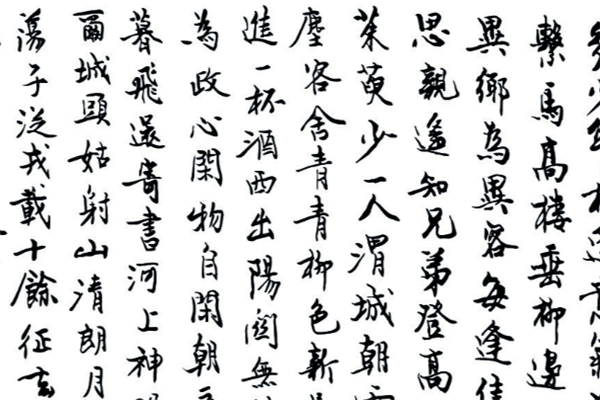 繫馬高樓垂柳邊
異鄉為異客每逢佳
思親遙知兄弟登高
茱萸少一人渭城朝
塵客舍青青柳色新
進一杯酒西出陽關無
為政心閑物自閑朝
暮飛還寄書河上神
爾城頭姑射山清朗月
蕩子從戎載十餘征去